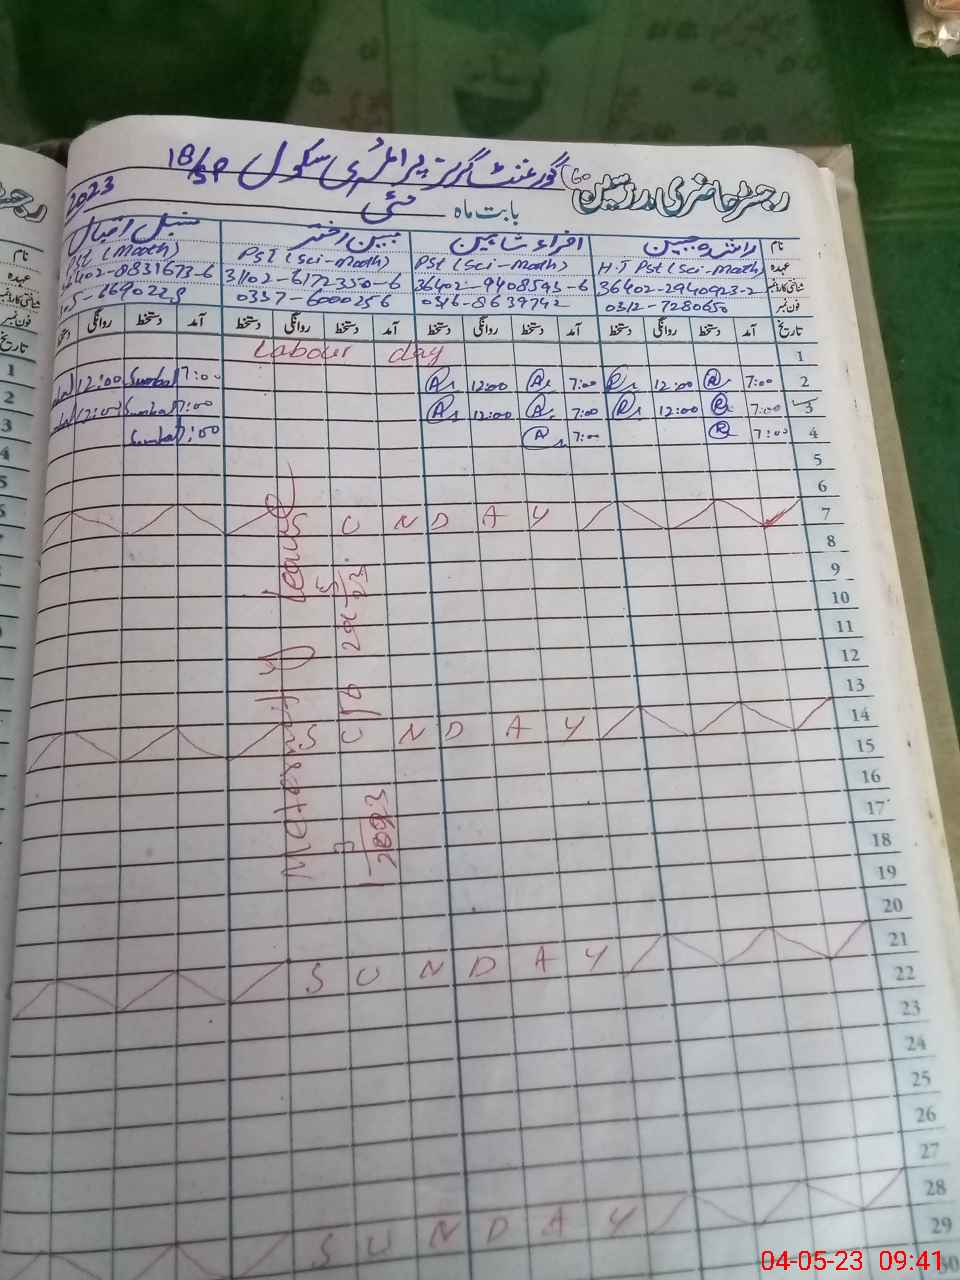 گورنمنٹ گرلز پرائمری سکول 18/SP
رجسٹر حاضری مدرسین
بابت ماہ مئی 2023
نام راشدہ جبین افراء شاہین مبین اختر سنبل اقبال
عہدہ H.T PST (Sci-Math) PST (Sci-Math) PST (Sci-Math) PST (Math)
شناختی کارڈ نمبر 36402-2940923-2 36402-9408595-6 31102-6172350-6 36402-8831673-6
فون نمبر 0312-7280650 0316-8639742 0337-6000256
تاریخ آمد دستخط روانگی دستخط آمد دستخط روانگی دستخط آمد دستخط روانگی دستخط آمد دستخط روانگی دستخط
1 Labour day
2 7:00 12:00 7:00 12:00 7:00 Sumbal 12:00
3 7:00 12:00 7:00 12:00 7:00 Sumbal 12:00
4 7:00 7:00 7:00 Sumbal
5
6
7 SUNDAY
8
9
10
11
12
13
14 SUNDAY
15
16
17
18
19
20
21 SUNDAY
22
23
24
25
26
27
28 SUNDAY
29
30
Meternity leave
04-05-23 09:41